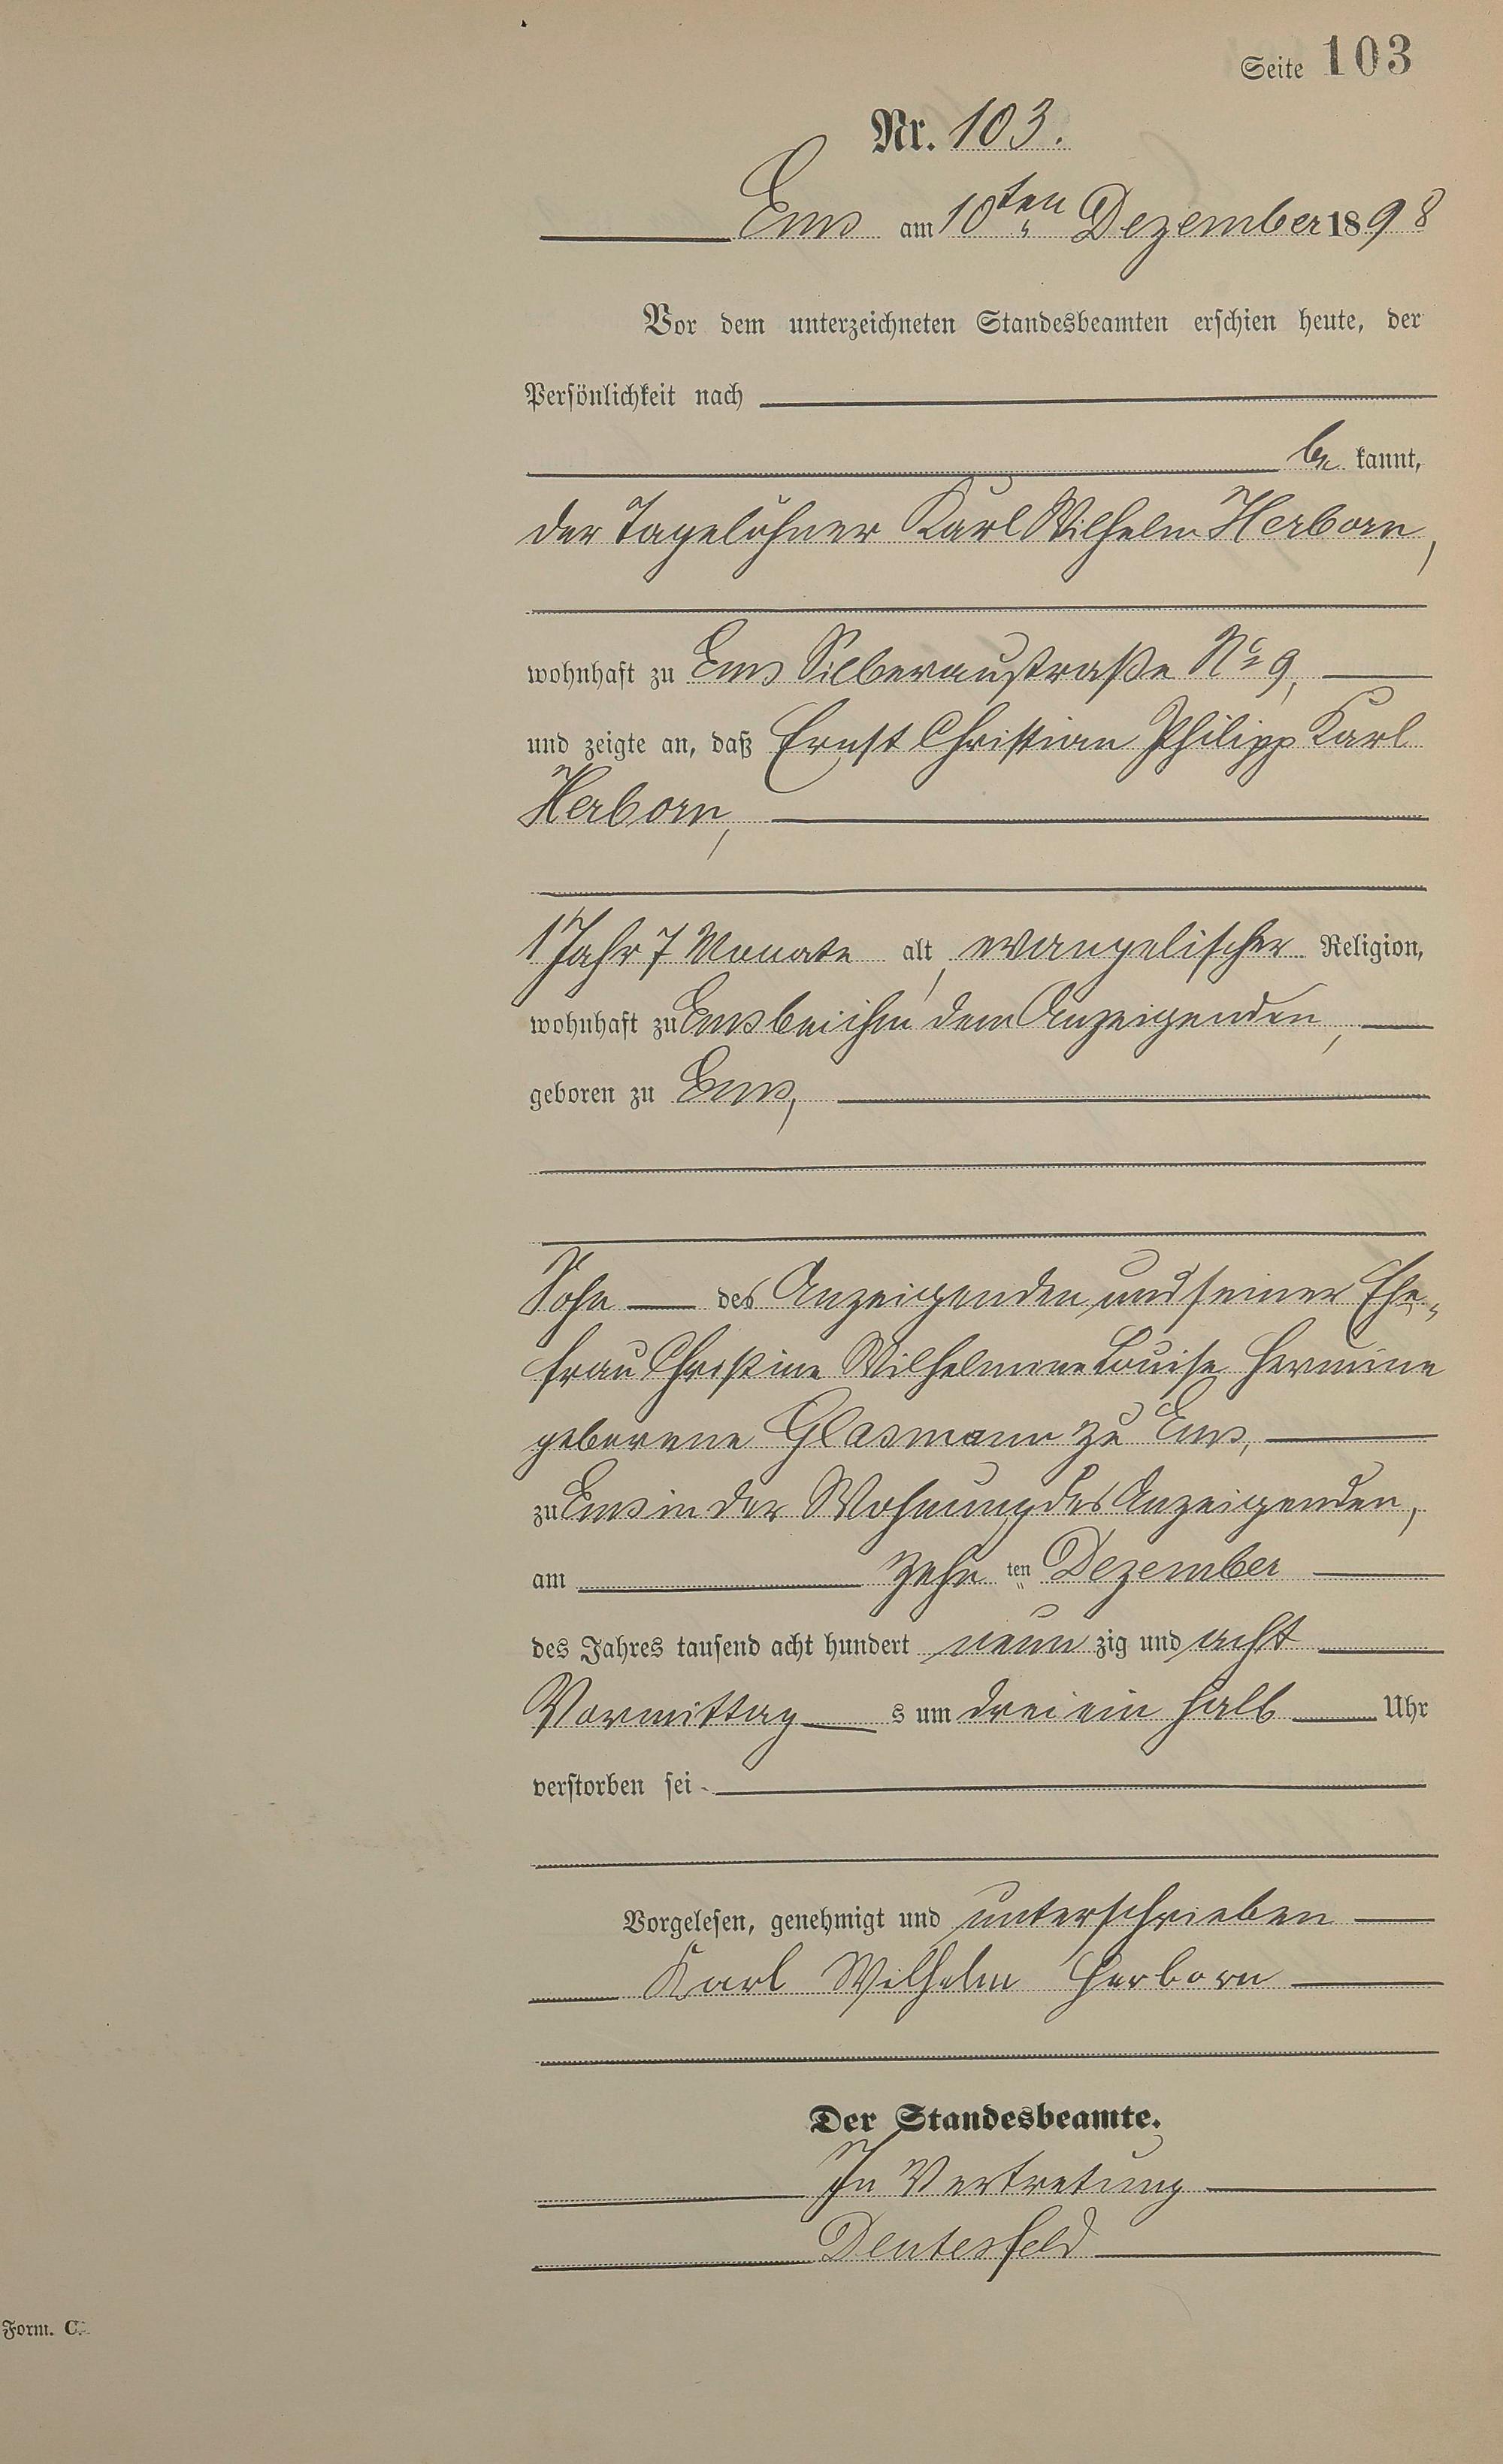 Seite 103
Nr. 103.
Ems am 10ten Dezember 1898
Vor dem unterzeichneten Standesbeamten erschien heute, der
Persönlichkeit nach
be kannt,
der Tagelöhner Karl Wilhelm Herborn,
wohnhaft zu Ems Silberaustraße No 9,
und zeigte an, daß Ernst Christian Philipp Karl
Herborn,
1 Jahr 7 Monate alt, evangelischer Religion,
wohnhaft zu Ems bei ihm dem Anzeigenden,
geboren zu Ems,
Sohn des Anzeigenden und seiner Ehe-
frau Christine Wilhelmine Louise Hermine
geborene Glasmann zu Ems,
zu Ems in der Wohnung des Anzeigenden,
am zehn ten Dezember
des Jahres tausend acht hundert neun zig und acht
Vormittag s um drei ein halb Uhr
verstorben sei.
Vorgelesen, genehmigt und unterschrieben
Karl Wilhelm Herborn
Der Standesbeamte.
In Vertretung
Deutesfeld
Form. C.